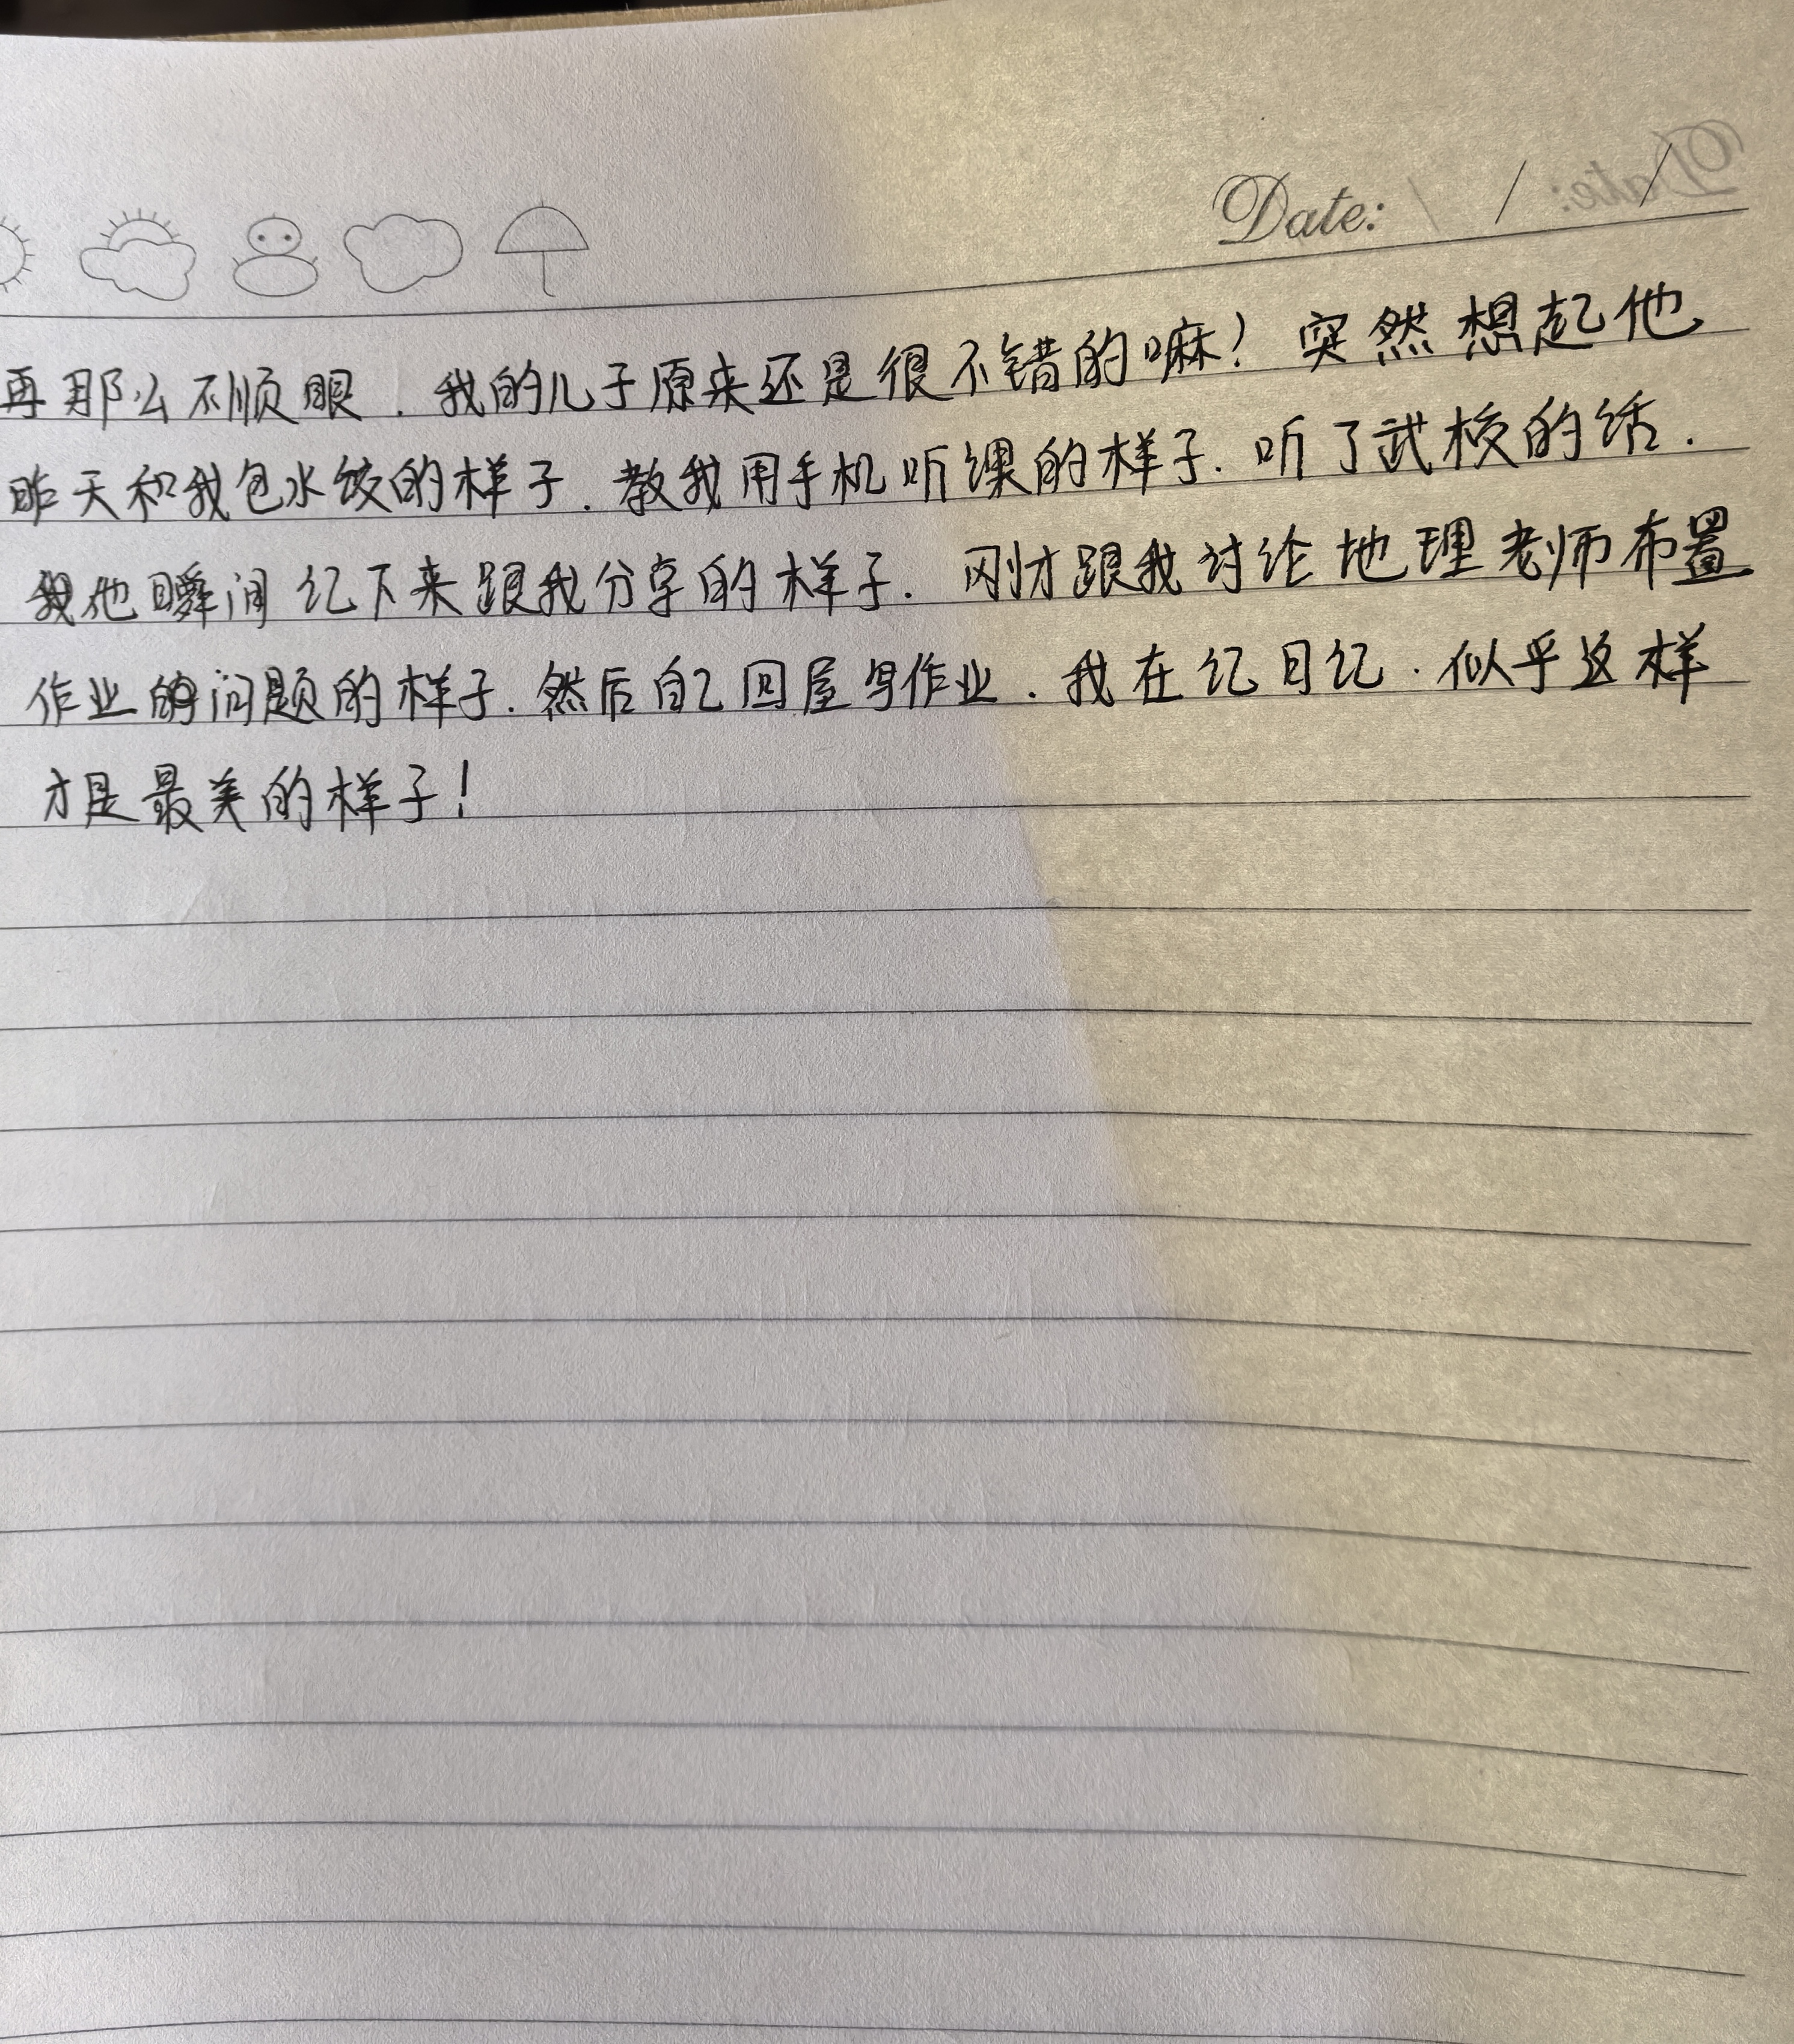 Date: / / /
再那么不顺眼.我的儿子原来还是很不错的嘛?突然想起他
昨天和我包水饺的样子.教我用手机听课的样子.听了武校的话.
他瞬间记下来跟我分享的样子.刚才跟我讨论地理老师布置
作业的问题的样子.然后自己回屋写作业.我在记日记.似乎这样
才是最美的样子!